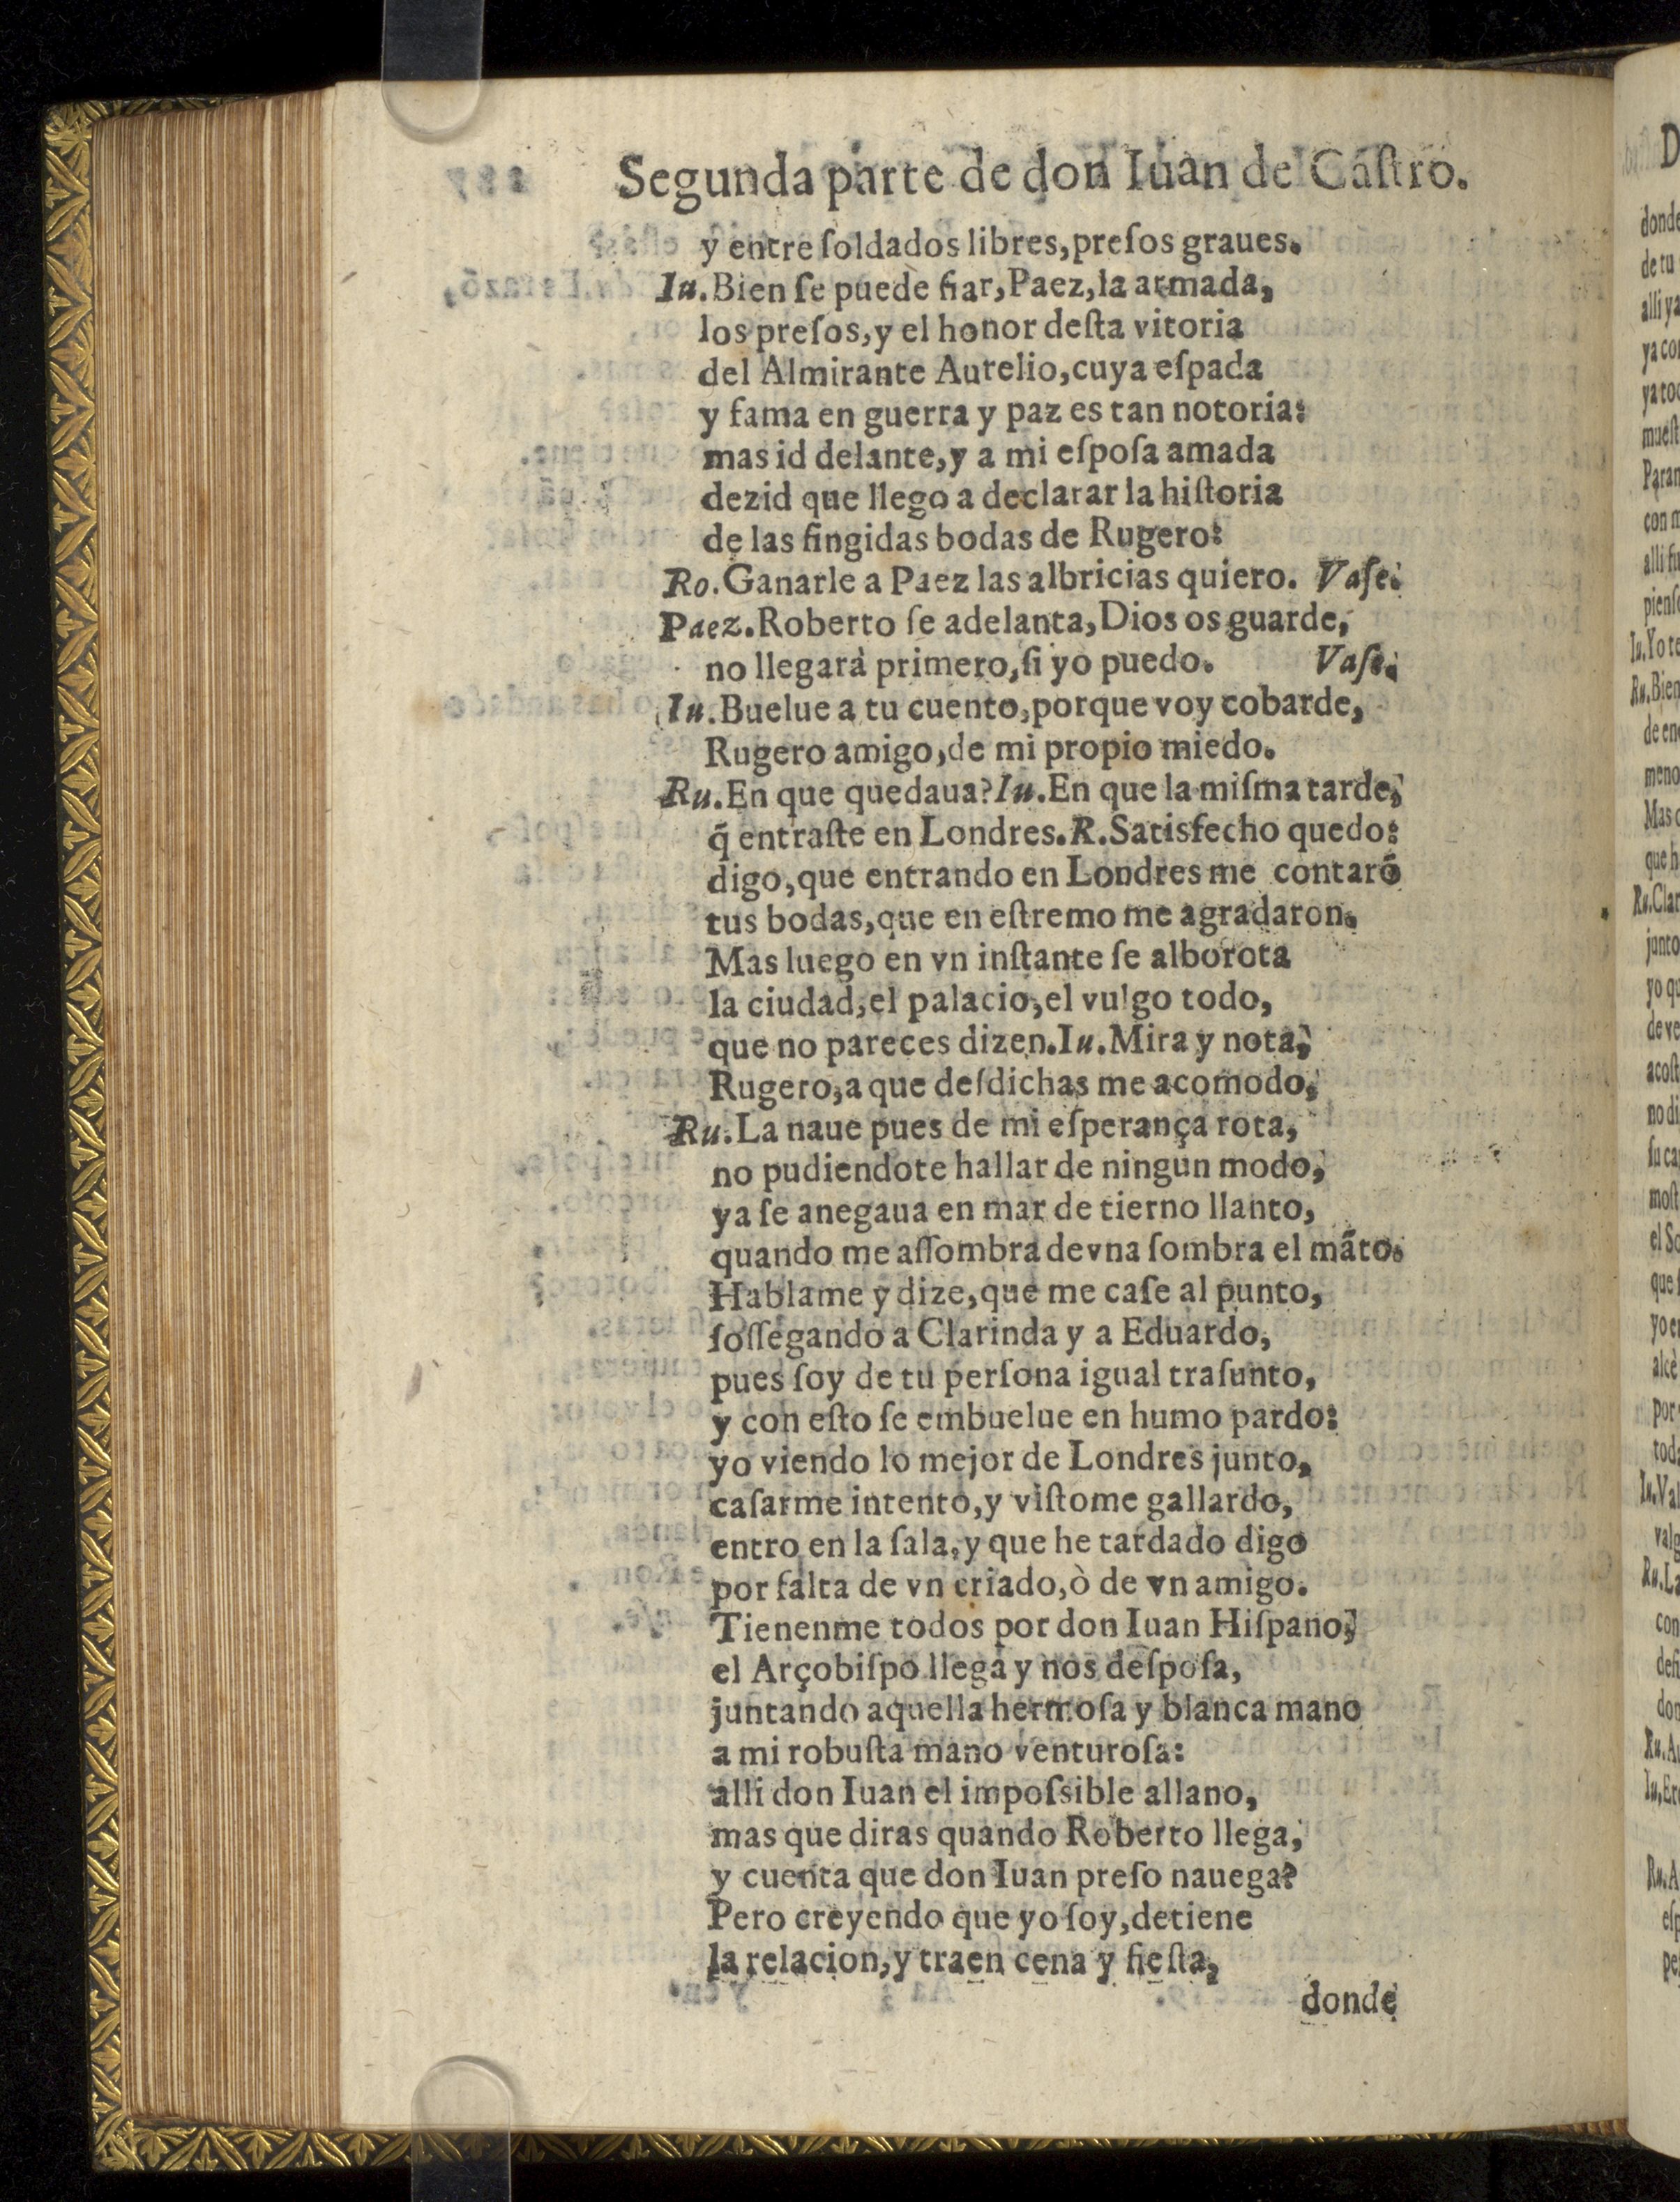 Segunda parte de don Iuan de Castro.
y entre ſoldados libres, preſos graues.
Iu. Bien ſe puede fiar, Paez, la armada,
los preſos, y el honor deſta vitoria
del Almirante Aurelio, cuya eſpada
y fama en guerra y paz es tan notoria:
mas id delante, y a mi eſpoſa amada
dezid que llego a declarar la hiſtoria
de las fingidas bodas de Rugero:
Ro. Ganarle a Paez las albricias quiero. Vaſe.
Paez. Roberto ſe adelanta, Dios os guarde,
no llegarà primero, ſi yo puedo. Vaſe.
Iu. Buelue a tu cuento, porque voy cobarde,
Rugero amigo, de mi propio miedo.
Ru. En que quedaua? Iu. En que la miſma tarde,
q̃ entraſte en Londres. R. Satisfecho quedo:
digo, que entrando en Londres me contarõ
tus bodas, que en eſtremo me agradaron.
Mas luego en vn inſtante ſe alborota
la ciudad, el palacio, el vulgo todo,
que no pareces dizen. Iu. Mira y nota,
Rugero, a que deſdichas me acomodo,
Ru. La naue pues de mi eſperança rota,
no pudiendote hallar de ningun modo,
ya ſe anegaua en mar de tierno llanto,
quando me aſſombra de vna ſombra el mãto.
Hablame y dize, que me caſe al punto,
ſoſſegando a Clarinda y a Eduardo,
pues ſoy de tu perſona igual traſunto,
y con eſto ſe embuelue en humo pardo:
yo viendo lo mejor de Londres junto,
caſarme intento, y viſtome gallardo,
entro en la ſala, y que he tardado digo
por falta de vn criado, ò de vn amigo.
Tienenme todos por don Iuan Hiſpano,
el Arçobiſpo llega y nos deſpoſa,
juntando aquella hermoſa y blanca mano
a mi robuſta mano venturoſa:
alli don Iuan el impoſsible allano,
mas que diras quando Roberto llega,
y cuenta que don Iuan preſo nauega?
Pero creyendo que yo ſoy, detiene
la relacion, y traen cena y fieſta,
donde